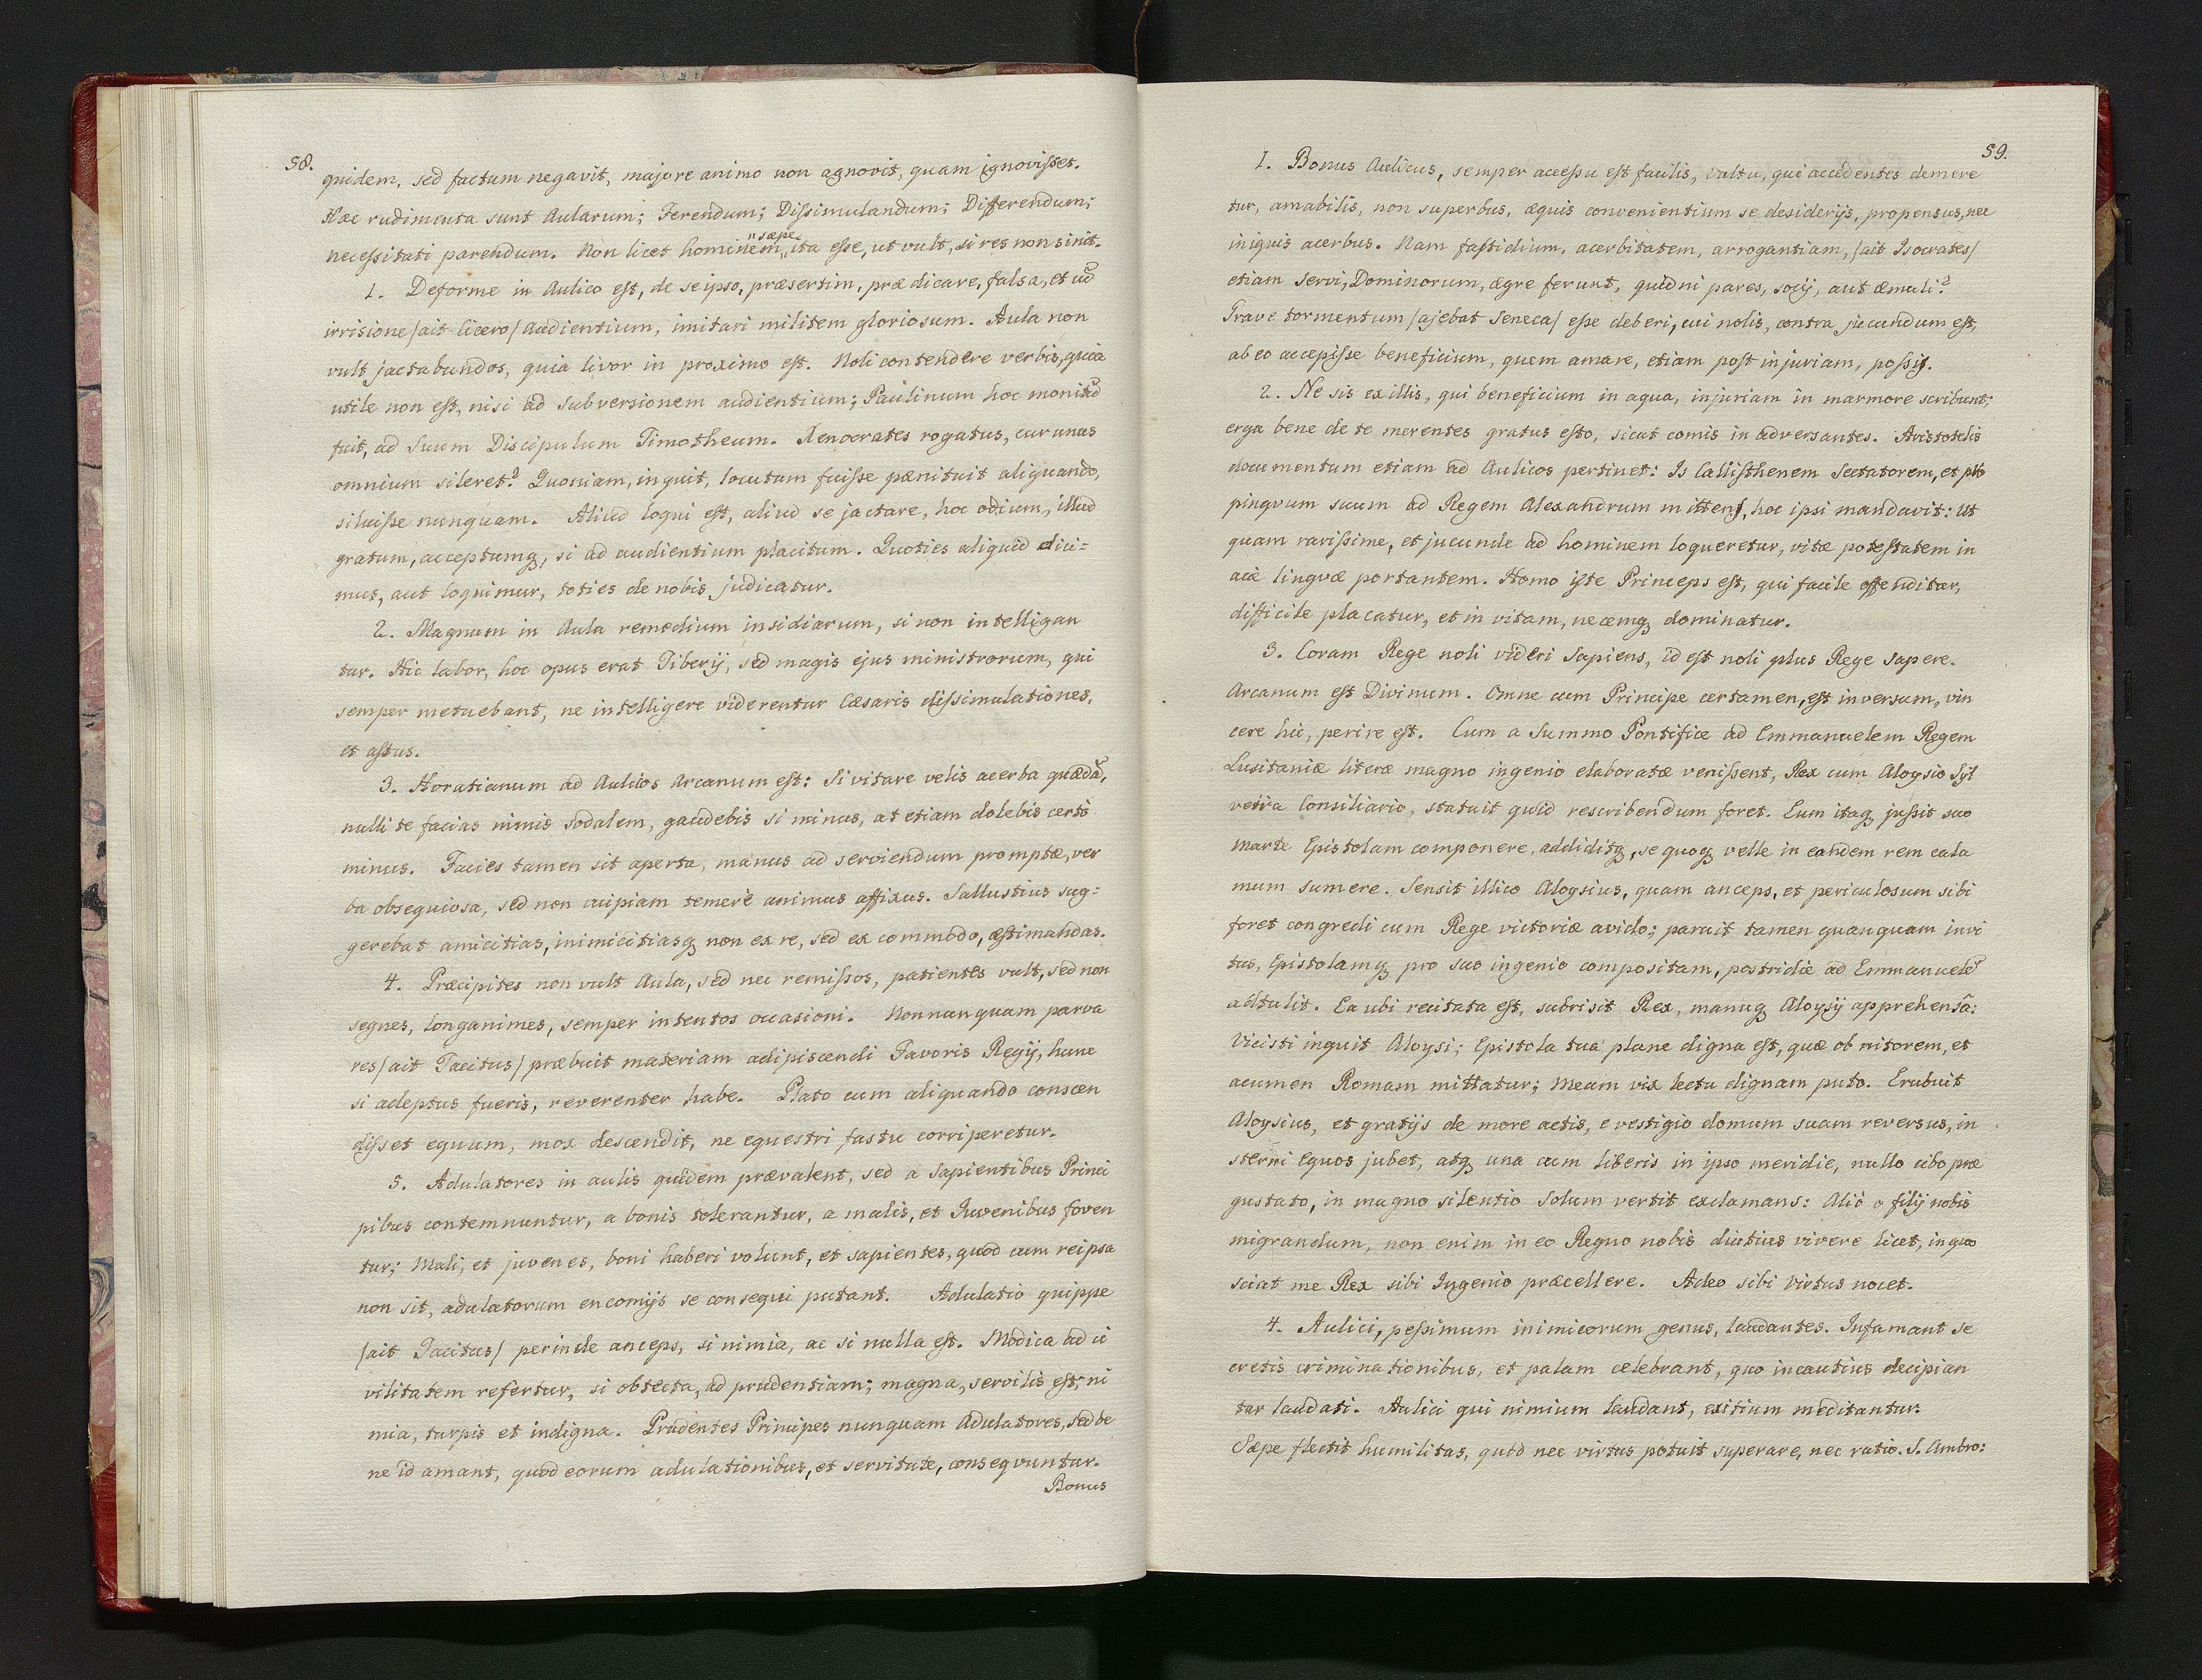 58.
quidem, sed factum negavit, majore animo non agnovit, quam ignovisset.
Hæc rudimenta sunt Aularum; Ferendum; Dissimulandum; Differendum;
necessitati parendum. Non licet hominem „sæpe„ ita esse, ut vult, si res non sinit.
1. Deforme in Aulico est, de se ipso, præsertim, prædicare, falsa, et cũ
irrisione /ait Cicero/ audientium, imitari militem gloriosum. Aula non
vult jactabundos, quia livor in proximo est. Noli contendere verbis, quia
utile non est, nisi ad subversionem audientium; Paulinum hoc monitũ
fuit, ad suum Discipulum Timotheum. Xenocrates rogatus, cur unus
omnium sileret? Quoniam, inquit, locutum fuisse pænituit aliquando,
siluisse nunquam. Aliud loqui est, aliud se jactare, hoc odium, illud
gratum, acceptumq, si ad audientium placitum. Quoties aliquid dici=
mus, aut loquimur, toties de nobis judicatur.
2. Magnum in Aula remedium insidiarum, si non intelligan
tur. Hic labor, hoc opus erat Tiberij, sed magis ejus ministrorum, qui
semper metuebant, ne intelligere viderentur Cæsaris dissimulationes,
et astus.
3. Horatianum ad Aulicos Arcanum est: Si vitare velis acerba quædã,
nulli te facias nimis sodalem, gaudebis si minus, at etiam dolebis certò
minus. Facies tamen sit aperta, manus ad serviendum promptæ, ver
ba obsequiosa, sed non cuipiam temerè animus affixus. Sallustius sug=
gerebat amicitias, inimicitiasq non ex re, sed ex commodo, æstimandas.
4. Præcipites non vult Aula, sed nec remissos, patientes vult, sed non
segnes, longanimes, semper intentos occasioni. Nonnunquam parva
res /ait Tacitus/ præbuit materiam adipiscendi Favoris Regij, hunc
si adeptus fueris, reverenter habe. Plato cum aliquando conscen
disset equum, mox descendit, ne equestri fastu corriperetur.
5. Adulatores in aulis quidem prævalent, sed a Sapientibus Princi
pibus contemnuntur, a bonis tolerantur, a malis, et Iuvenibus foven
tur; Mali, et juvenes, boni haberi volunt, et sapientes, quod cum reipsa
non sit, adulatorum encomijs se consequi putant. Adulatio quippe
/ait Tacitus/ perinde anceps, si nimia, ac si nulla est. Modica ad ci
vilitatem refertur, si obtecta, ad prudentiam; magna, servilis est; ni
mia, turpis et indigna. Prudentes Principes nunquam Adulatores, sed be
ne id amant, quod eorum adulationibus, et servitute, conseqvuntur.
Bonus
59.
1. Bonus Aulicus, semper accessu est facilis, vultu, qui accedentes demere
tur, amabilis, non superbus, æquis convenientium se desiderijs, propensus, nec
iniquis acerbus. Nam fastidium, acerbitatem, arrogantiam, /ait Isocrates/
etiam servi, Dominorum, ægre ferunt, quidni pares, socij, aut æmuli?
Grave tormentum /ajebat Seneca/ esse deberi, cui nolis, contra jucundum est,
ab eo accepisse beneficium, quem amare, etiam post injuriam, possis.
2. Ne sis ex illis, qui beneficium in aqua, injuriam in marmore scribunt;
erga bene de te merentes gratus esto, sicut comis in adversantes. Aristotelis
documentum etiam ad Aulicos pertinet: Is Callisthenem Sectatorem, et pro
pinqvum suum ad Regem Alexandrum mittens, hoc ipsi mandavit: Ut
quam rarissime, et jucunde ad hominem loqueretur, vitæ potestatem in
acie lingvæ portantem. Homo iste Princeps est, qui facile offenditur,
difficile placatur, et in vitam, necemq dominatur.
3. Coram Rege noli videri Sapiens, id est noli plus Rege sapere.
Arcanum est Divinum. Omne cum Principe certamen, est inversum, vin
cere hic, perire est. Cum a Summo Pontifice ad Emmanuelem Regem
Lusitaniæ literæ magno ingenio elaboratæ venissent, Rex cum Aloysio Syl
veira Consiliario, statuit quid rescribendum foret. Eum itaq jussit suo
marte Epistolam componere, addiditq, se quoq velle in eandem rem cala
mum sumere. Sensit illico Aloysius, quam anceps, et periculosum sibi
foret congredi cum Rege victoriæ avido; paruit tamen quanquam invi
tus, Epistolamq pro suo ingenio compositam, postridie ad Emmanuelẽ
attulit. Ea ubi recitata est, subrisit Rex, manuq Aloysij apprehensã:
Vicisti inquit Aloysi; Epistola tua plane digna est, quæ ob nitorem, et
acumen Romam mittatur; Meam vix lectu dignam puto. Erubuit
Aloysius, et gratijs de more actis, e vestigio domum suam reversus, in
sterni Equos jubet, atq una cum liberis in ipso meridie, nullo cibo præ
gustato, in magno silentio Solum vertit exclamans: Aliò o filij nobis
migrandum, non enim in eo Regno nobis diutius vivere licet, in quo
sciat me Rex sibi Ingenio præcellere. Adeo sibi virtus nocet.
4. Aulici, pessimum inimicorum genus, laudantes. Infamant se
cretis criminationibus, et palam celebrant, quo incautius decipian
tur laudati. Aulici qui nimium laudant, exitium meditantur.
Sæpe flectit humilitas, quod nec virtus potuit superare, nec ratio. S. Ambro: